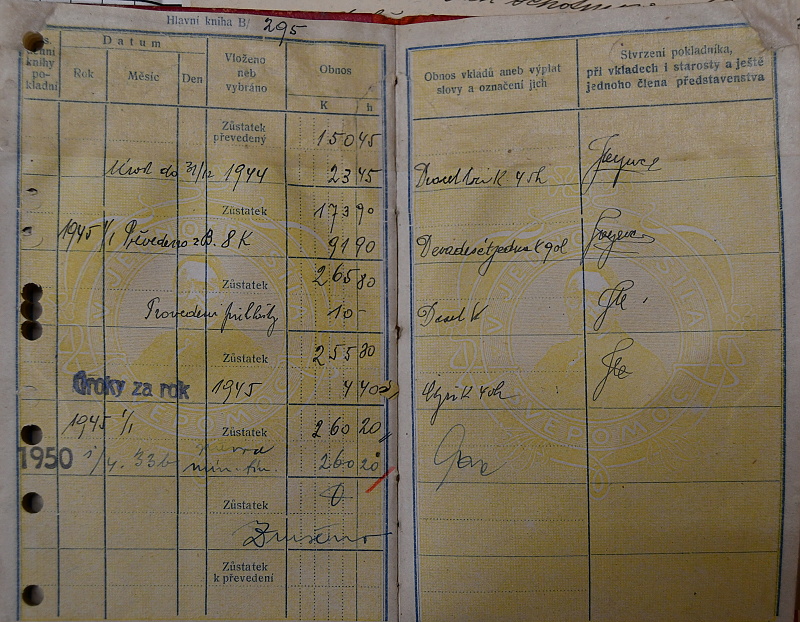 Hlavní kniha B/ 295
Datum
Rok
Měsíc
Den
Vloženo
neb
vybráno
Obnos
K h
knihy
po-
kladní
Obnos vkladů aneb výplat
slovy a označení jich
Stvrzení pokladníka,
při vkladech i starosty a ještě
jednoho člena představenstva
Zůstatek
převedený 150 45
do 31/12 1944 23 45
Zůstatek 173 90
1945 1/1 Převedeno z B. 8 K 91 90
Devadesátjedna K 90 h
Zůstatek 265 80
Provedení 10 -
Deset K
Zůstatek 255 80
Úroky za rok 1945 4 40
Čtyři K 40 h
1945 1/1 Zůstatek 260 20
1950 min. fin. 260 20
Zůstatek 0
Zrušeno
Zůstatek
k převedení